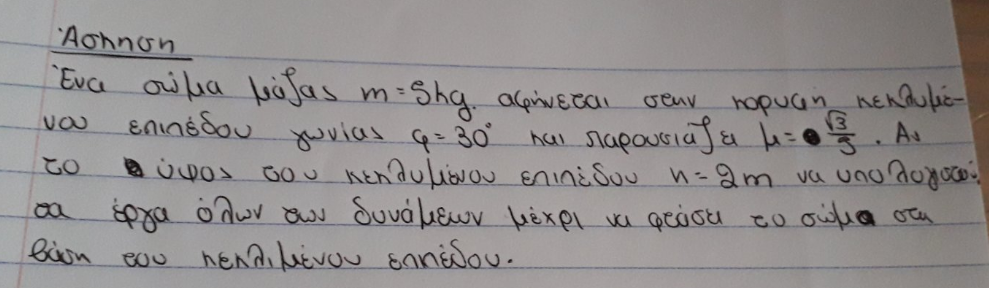 Άσκηση
Ένα σώμα μάζας m = 5kg. αφήνεται στην κορυφή κεκλιμέ-
νου επιπέδου γωνίας φ = 30° και παρουσιάζει μ = √3/5. Αν
το ύψος του κεκλιμένου επιπέδου h = 2m να υπολογιστούν
τα έργα όλων των δυνάμεων μέχρι να φτάσει το σώμα στη
βάση του κεκλιμένου επιπέδου.